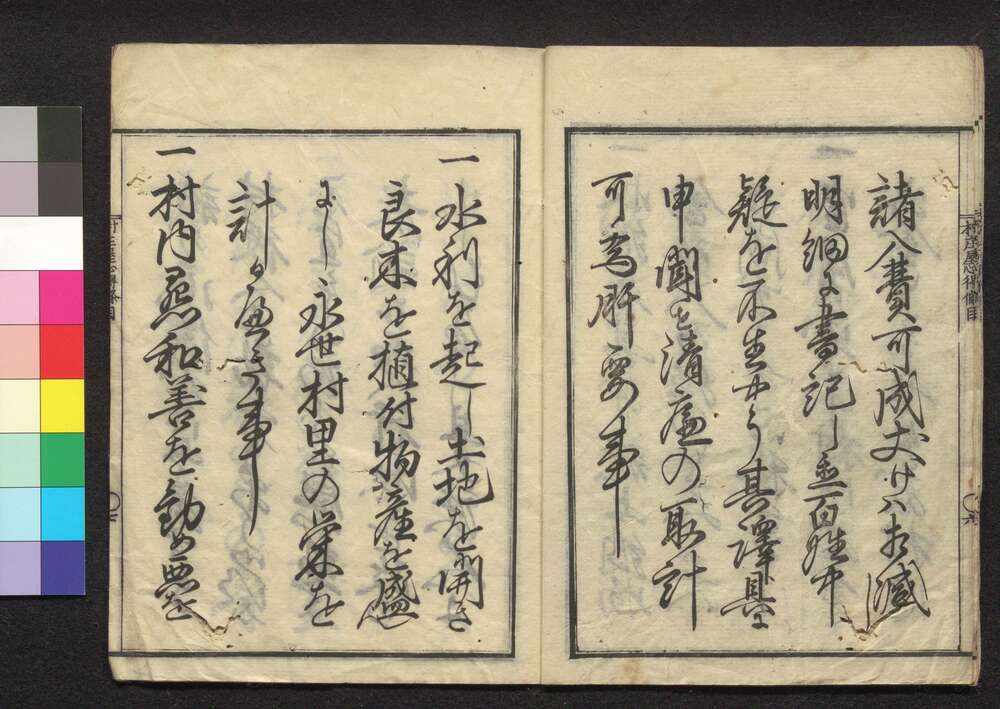 村庄屋心得條目
六
諸入費可成丈けハ相減
明細に書記し置百姓中
疑を不生やう其譯具に
申聞せ清廉の取計
可為肝要事
一水利を起し土地を開き
良木を植付物産を盛
にし永世村里の栄を
計るへき事
一村内和善を勧め悪を